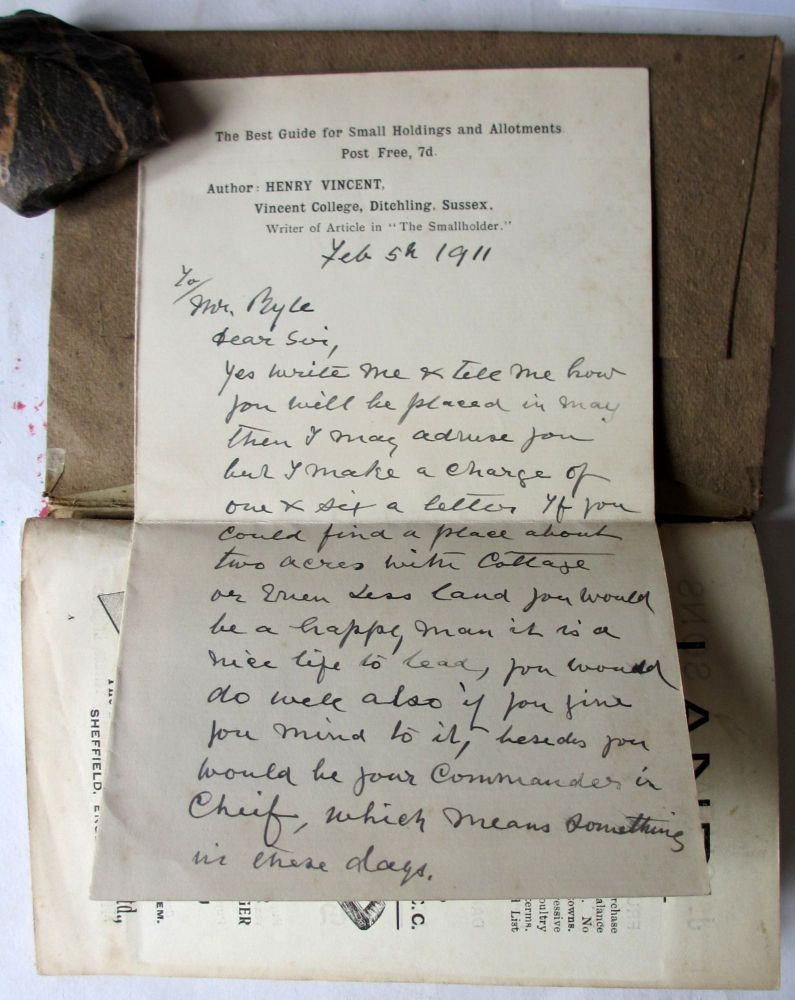 The Best Guide for Small Holdings and Allotments
Post Free, 7d.
Author: HENRY VINCENT,
Vincent College, Ditchling, Sussex.
Writer of Article in "The Smallholder."
Feb 5th 1911
To/
Mr. Ryle
Dear Sir,
Yes write me & tell me how
you will be placed in may
then I may advise you
but I make a charge of
one & six a letter If you
could find a place about
two acres with Cottage
or Even Less land you would
be a happy man it is a
nice life to lead, you would
do well also if you give
you mind to it, besides you
would be your Commander in
Cheif, which means something
in these days.
SHEFFIELD,
EM.
GER
C. C.
d List
erms.
oultry
ressive
owns.
No
alance
rchase